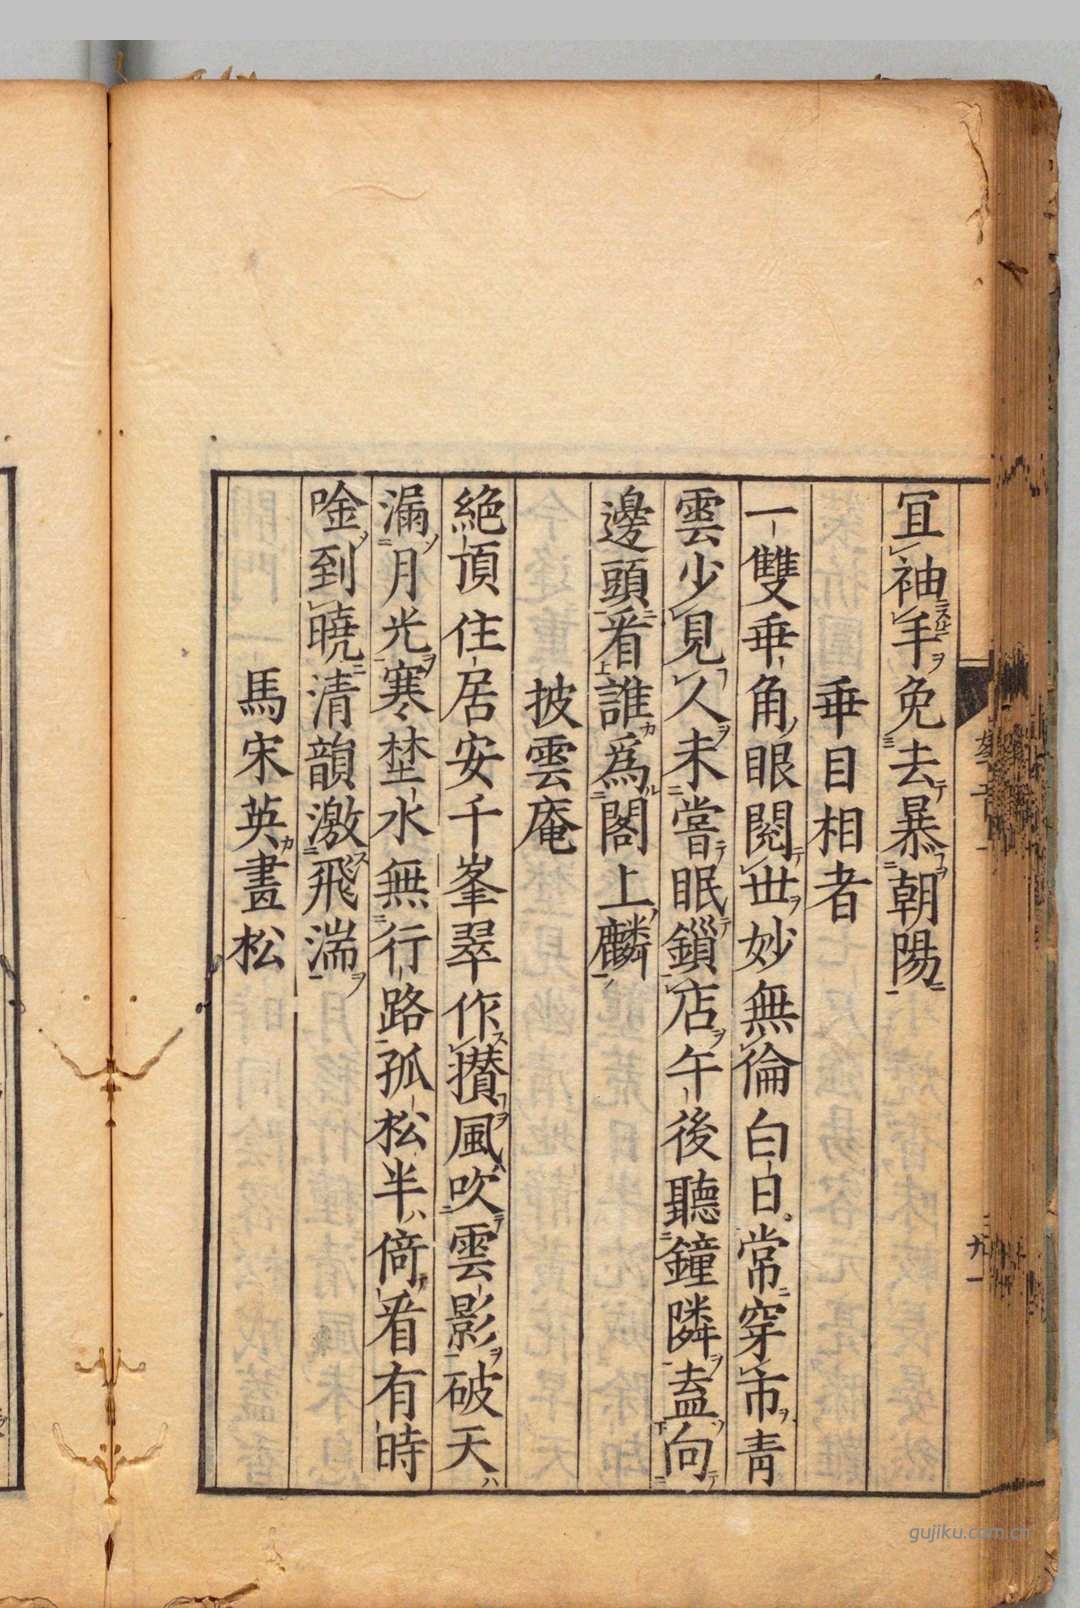 冝袖手免去暴朝陽
垂目相者
一雙垂角眼閱世妙無倫白日常穿市靑
雲少見人未嘗眠鎻店午後聽鐘隣盍向
邊頭看誰爲閣上麟
披雲庵
絶頂住居安千峯翠作攅風吹雲影破天
漏月光寒埜水無行路孤松半倚看有時
唫到曉清韻激飛湍
馬宋英畫松
九
gujiku.com.cn